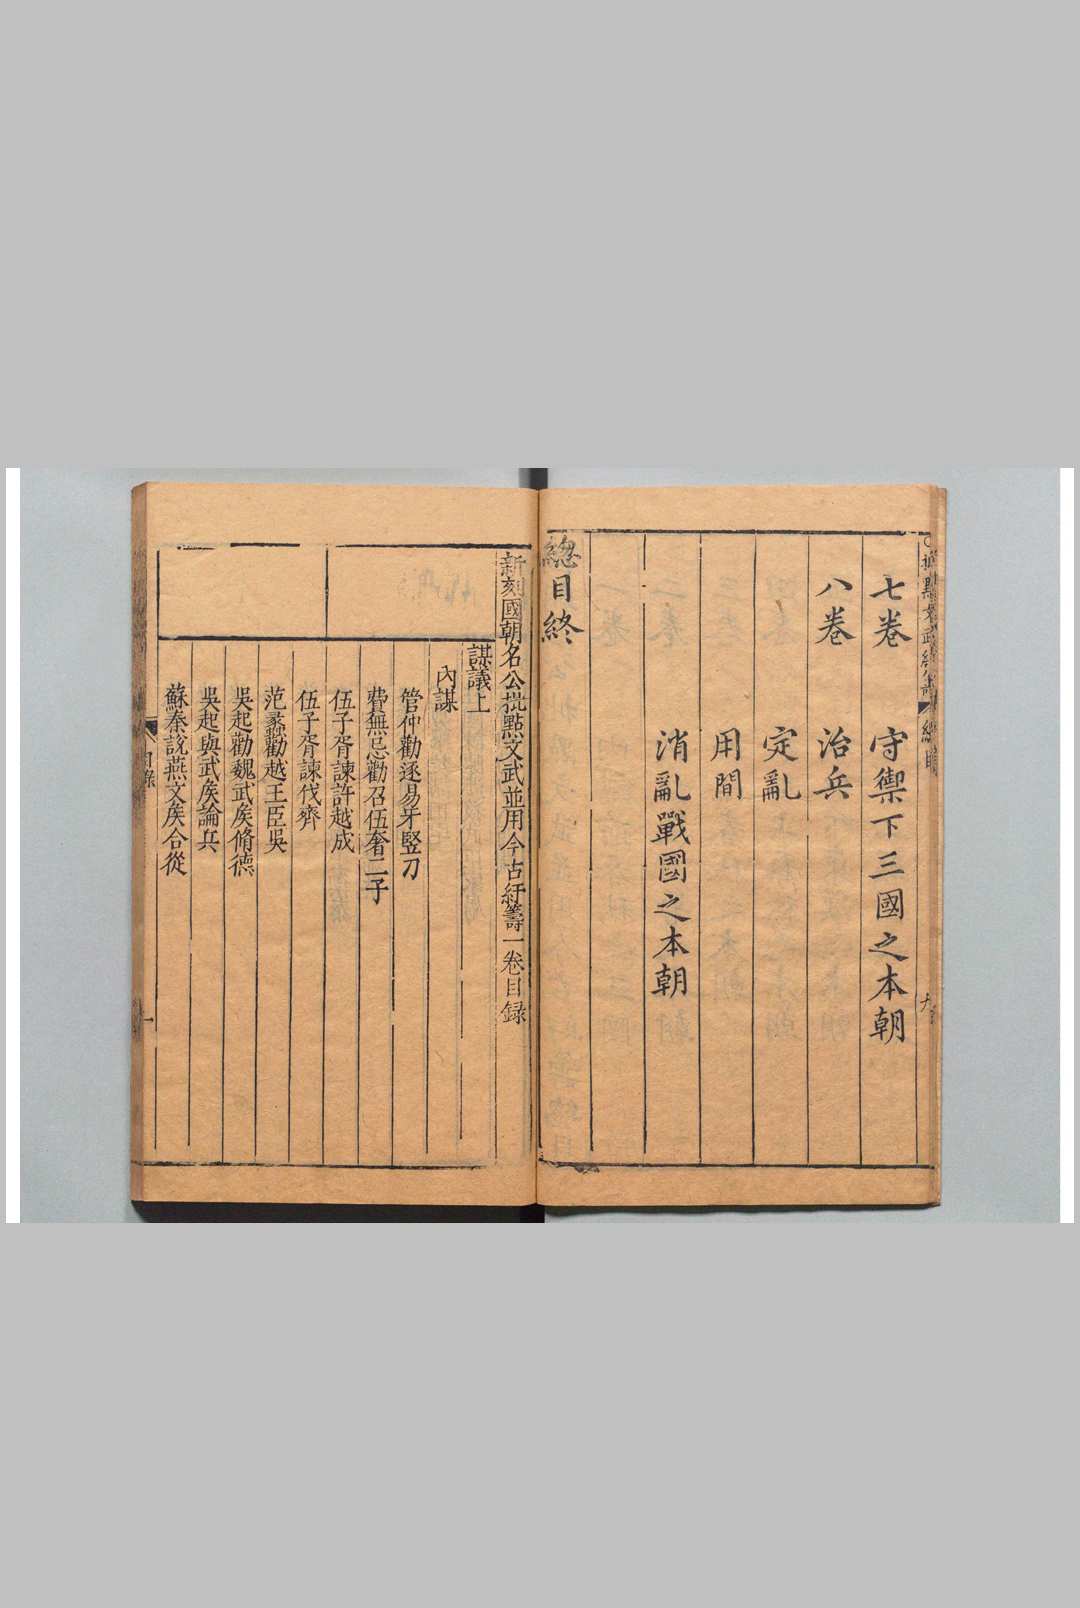 七卷 守禦下三國之本朝
八卷 治兵
定亂
用間
消亂戰國之本朝
總目終
新刻國朝名公批點文武並用今古紆籌一卷目録
謀議上
內謀
管仲勸逐易牙竪刀
費無忌勸召伍奢二子
伍子胥諫許越成
伍子胥諫伐齊
范蠡勸越王臣吳
吳起勸魏武矦脩德
吳起與武矦論兵
蘇秦說燕文矦合從
目錄
一